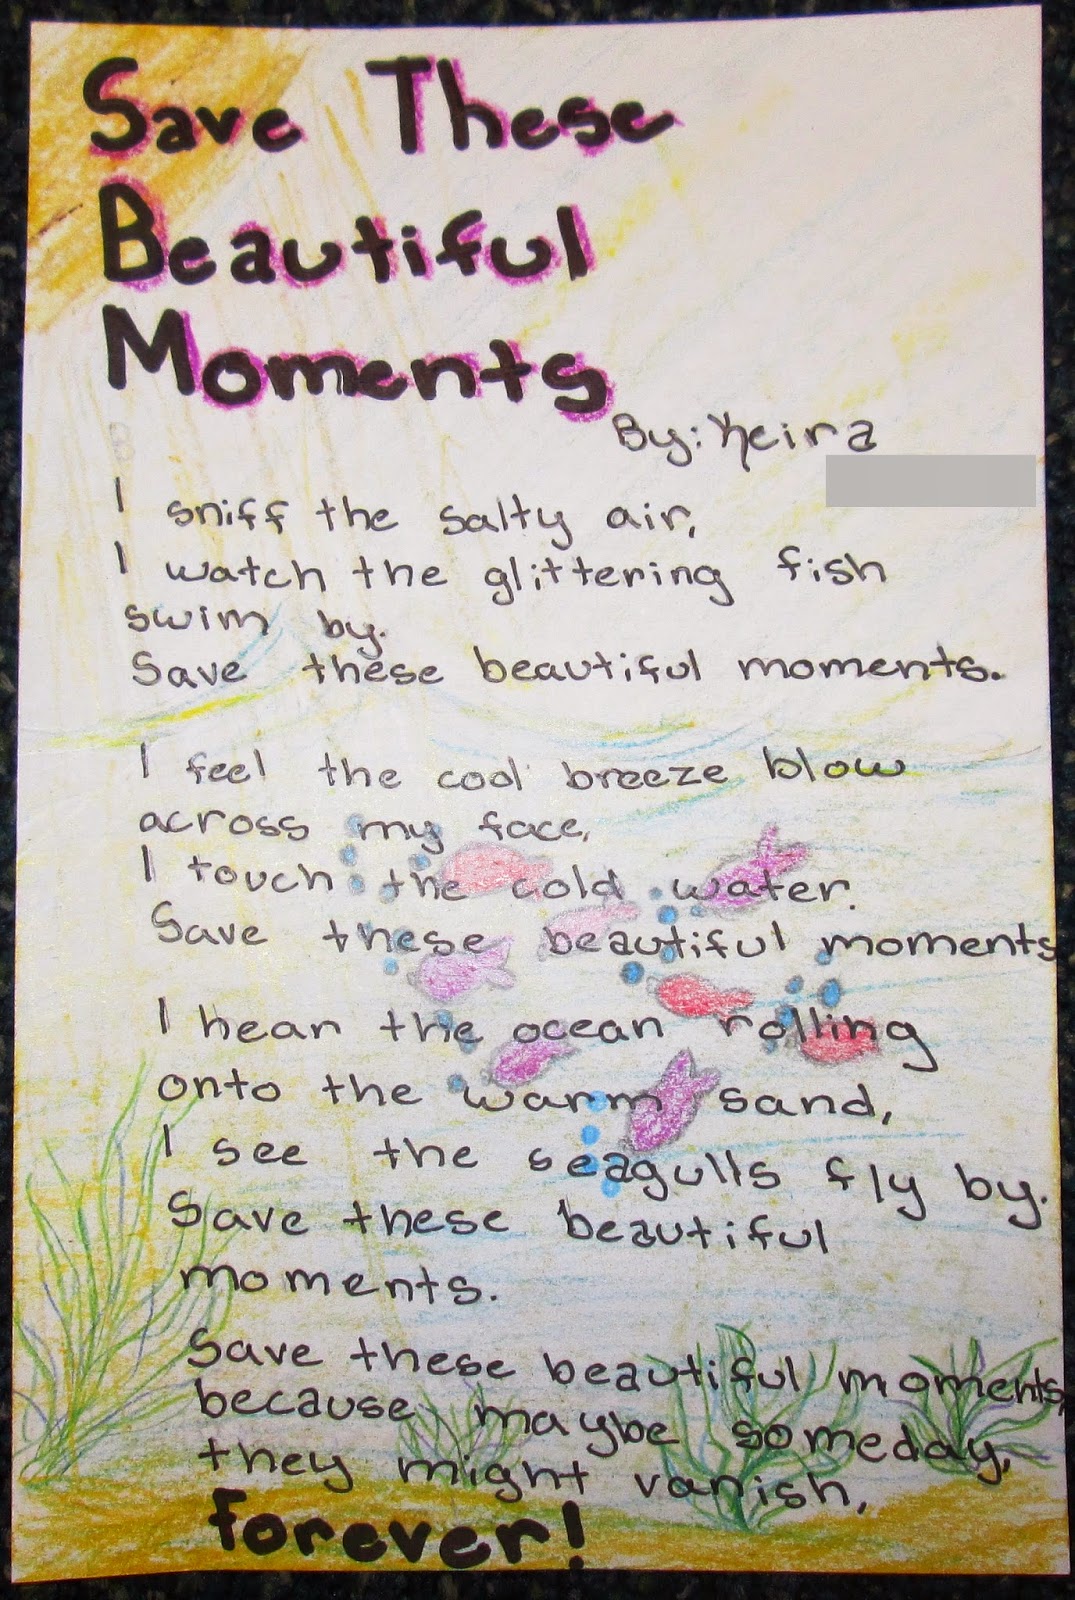 Save These
Beautiful
Moments
By: Keira
I sniff the salty air,
I watch the glittering fish
swim by.
Save these beautiful moments.
I feel the cool breeze blow
across my face,
I touch the cold water.
Save these beautiful moments
I hear the ocean rolling
onto the warm sand,
I see the seagulls fly by.
Save these beautiful
moments.
Save these beautiful moments,
because maybe someday,
they might vanish,
forever!